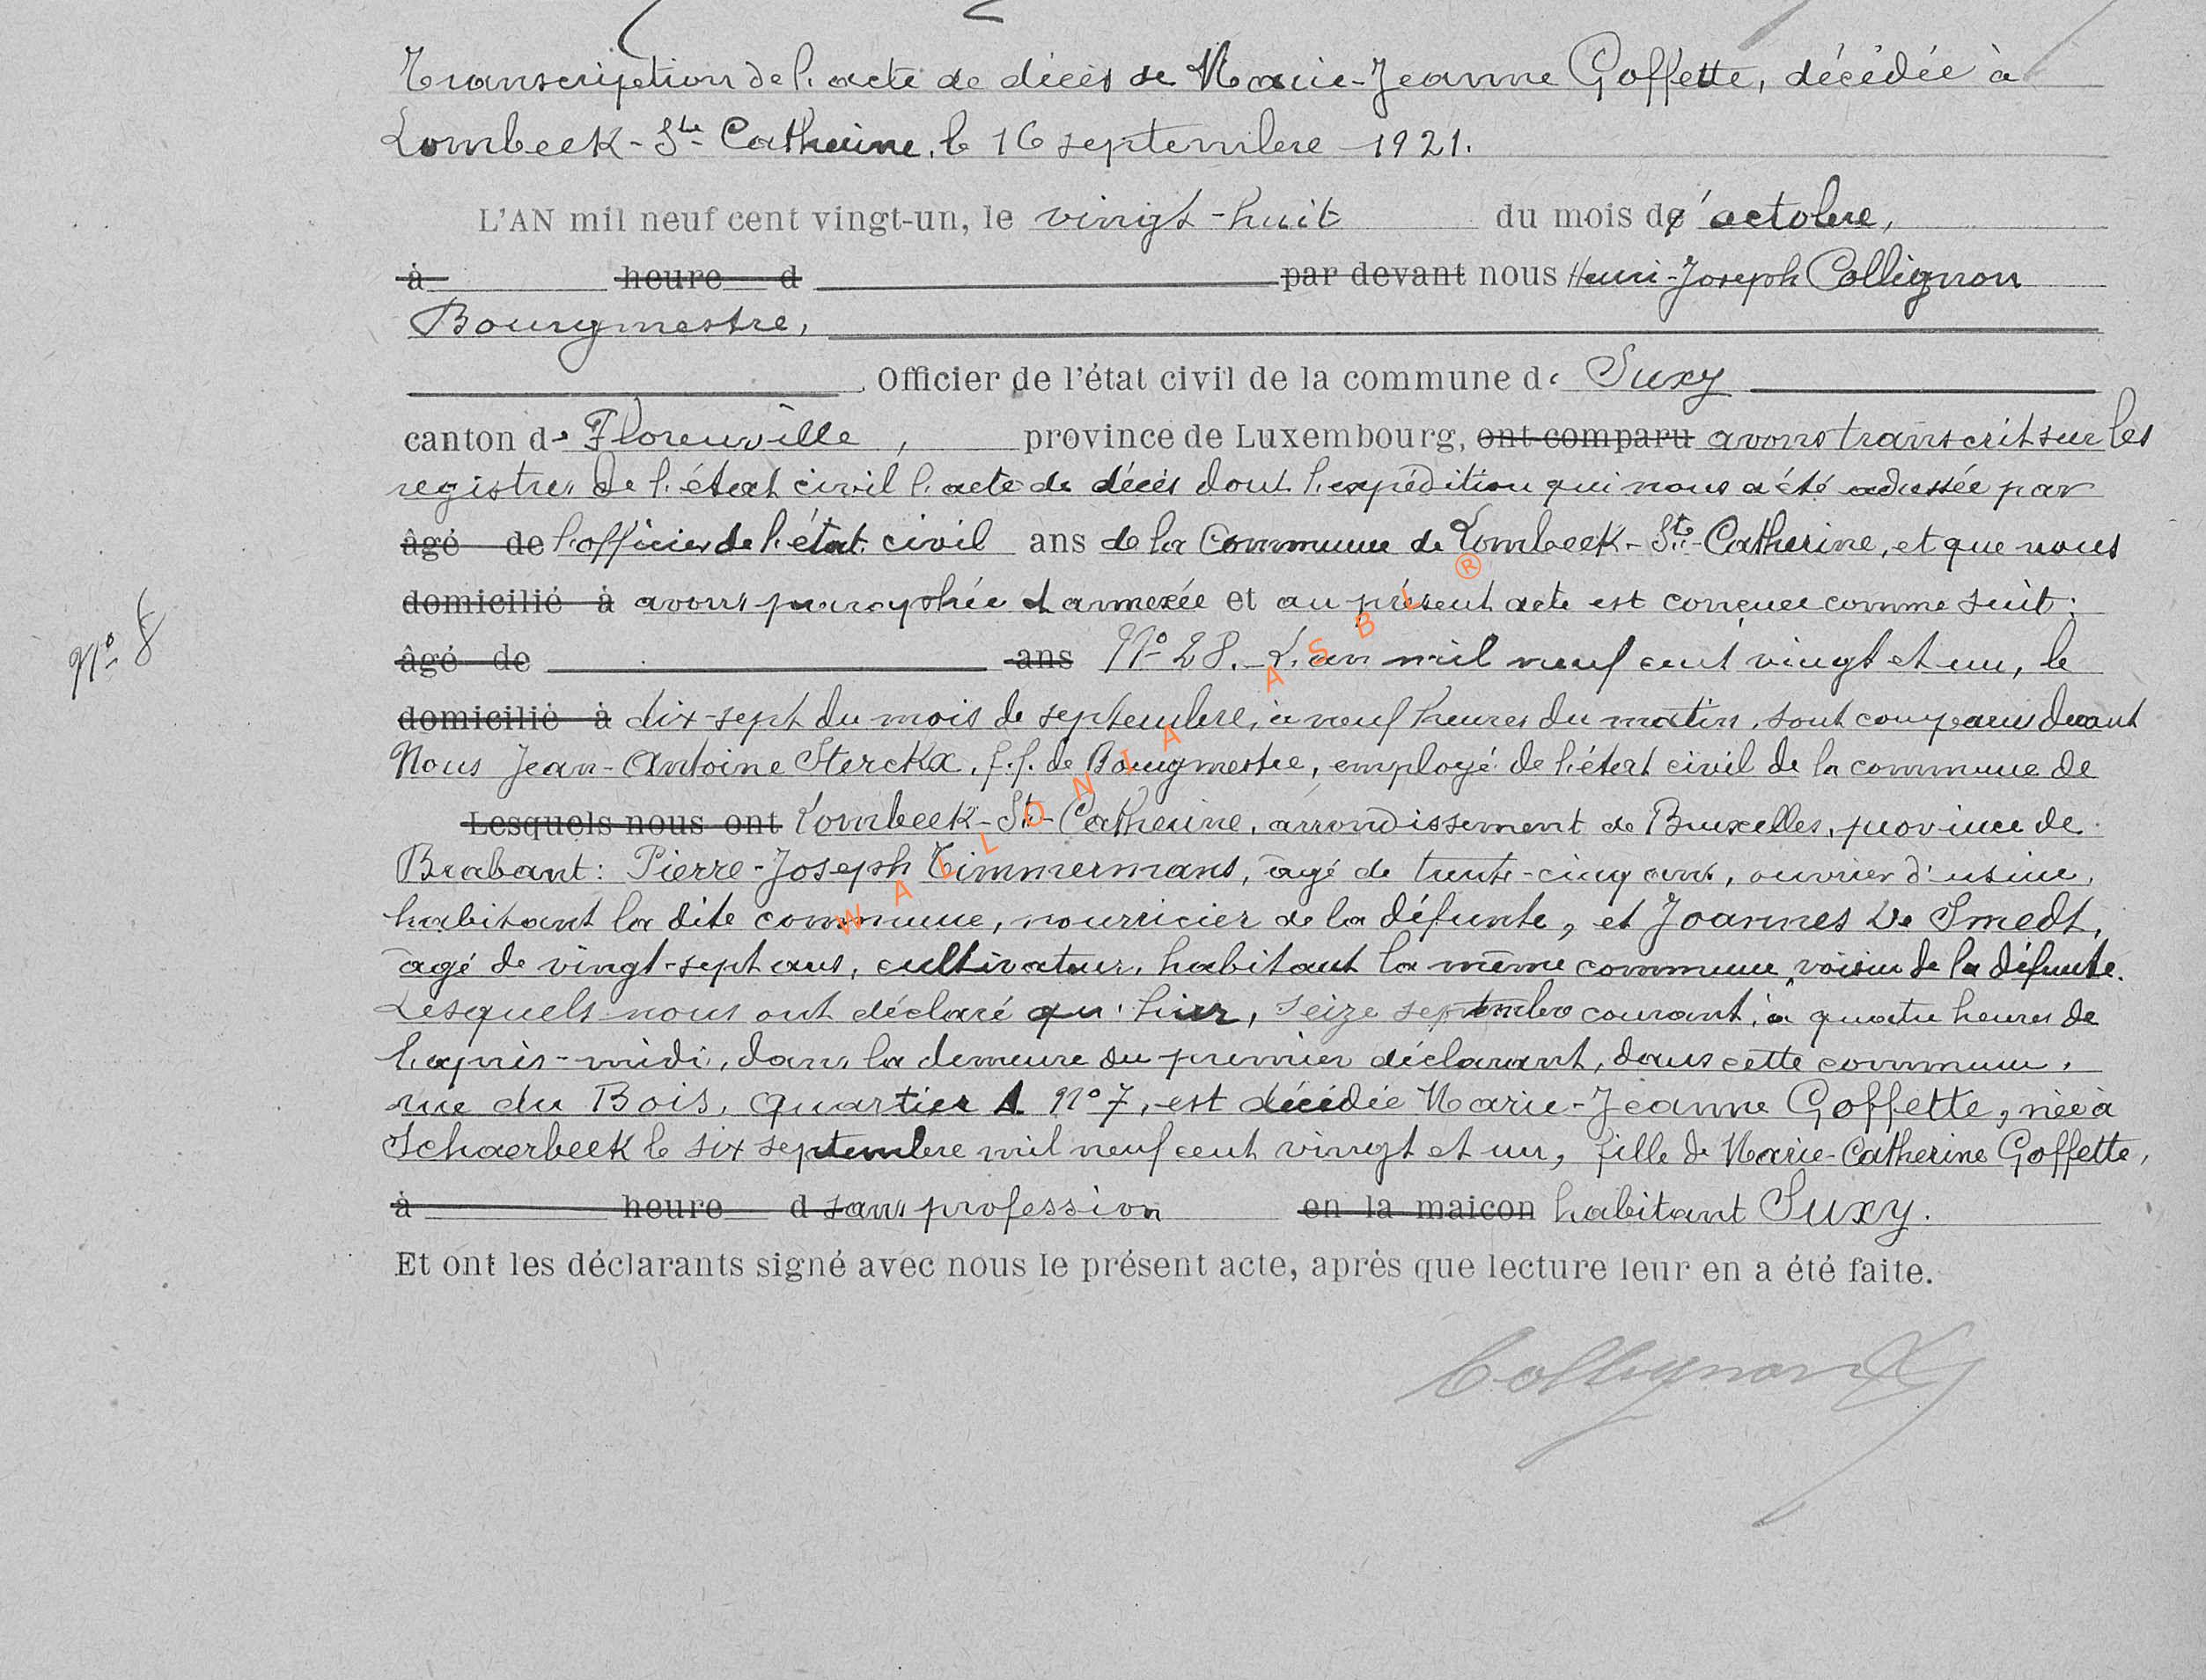 Transcription de l'acte de décès de Marie-Jeanne Goffette, décédée à
Lombeek-Ste Catherine, le 16 septembre 1921.
L'AN mil neuf cent vingt-un, le vingt-huit du mois d'octobre,
à heure d par devant nous Henri-Joseph Collignon
Bourgmestre,
Officier de l'état civil de la commune de Suxy
canton de Florenville, province de Luxembourg, ont comparu avons transcrit sur les
registres de l'état civil l'acte de décès dont l'expédition qui nous a été adressée par
âgé de l'officier de l'état civil ans de la Commune de Lombeek-Ste-Catherine, et que nous
domicilié à avons paraphée et annexée et au présent acte est conçue comme suit:
N° 8
âgé de ans N° 28. L'an mil neuf cent vingt et un, le
domicilié à dix-sept du mois de septembre, à neuf heures du matin, sont comparus devant
Nous Jean-Antoine Sterckx, f.f. de Bourgmestre, employé de l'état civil de la commune de
Lesquels nous ont Lombeek-Ste-Catherine, arrondissement de Bruxelles, province de
Brabant: Pierre-Joseph Timmermans, âgé de trente-cinq ans, ouvrier d'usine,
habitant la dite commune, nourricier de la défunte, et Joannes De Smedt,
âgé de vingt-sept ans, cultivateur, habitant la même commune, voisin de la défunte.
Lesquels nous ont déclaré qu'hier, seize septembre courant, à quatre heures de
l'après-midi, dans la demeure du premier déclarant, dans cette commune,
rue du Bois, quartier A n° 7, est décédée Marie-Jeanne Goffette, née à
Schaerbeek le six septembre mil neuf cent vingt et un, fille de Marie-Catherine Goffette,
à heure d sans profession en la maicon habitant Suxy.
Et ont les déclarants signé avec nous le présent acte, après que lecture leur en a été faite.
Collignon
WALLONIA ASBL ®